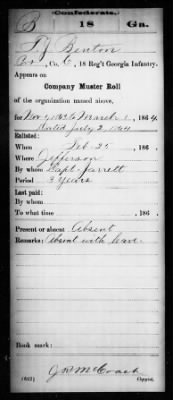 Confederate.
B 18 Ga.
T J Benton
Co. C, 18 Reg't Georgia Infantry.
Appears on
Company Muster Roll
of the organization named above,
for Nov 1, 1863 to March 1, 1864
dated July 2, 1864
Enlisted:
When Feb. 25, 186
Where Jefferson
By whom Capt. Jarrett
Period 3 Years
Last paid:
By whom
To what time , 186 .
Present or absent Absent
Remarks: Absent with leave.
Book mark:
(642) Copyist.